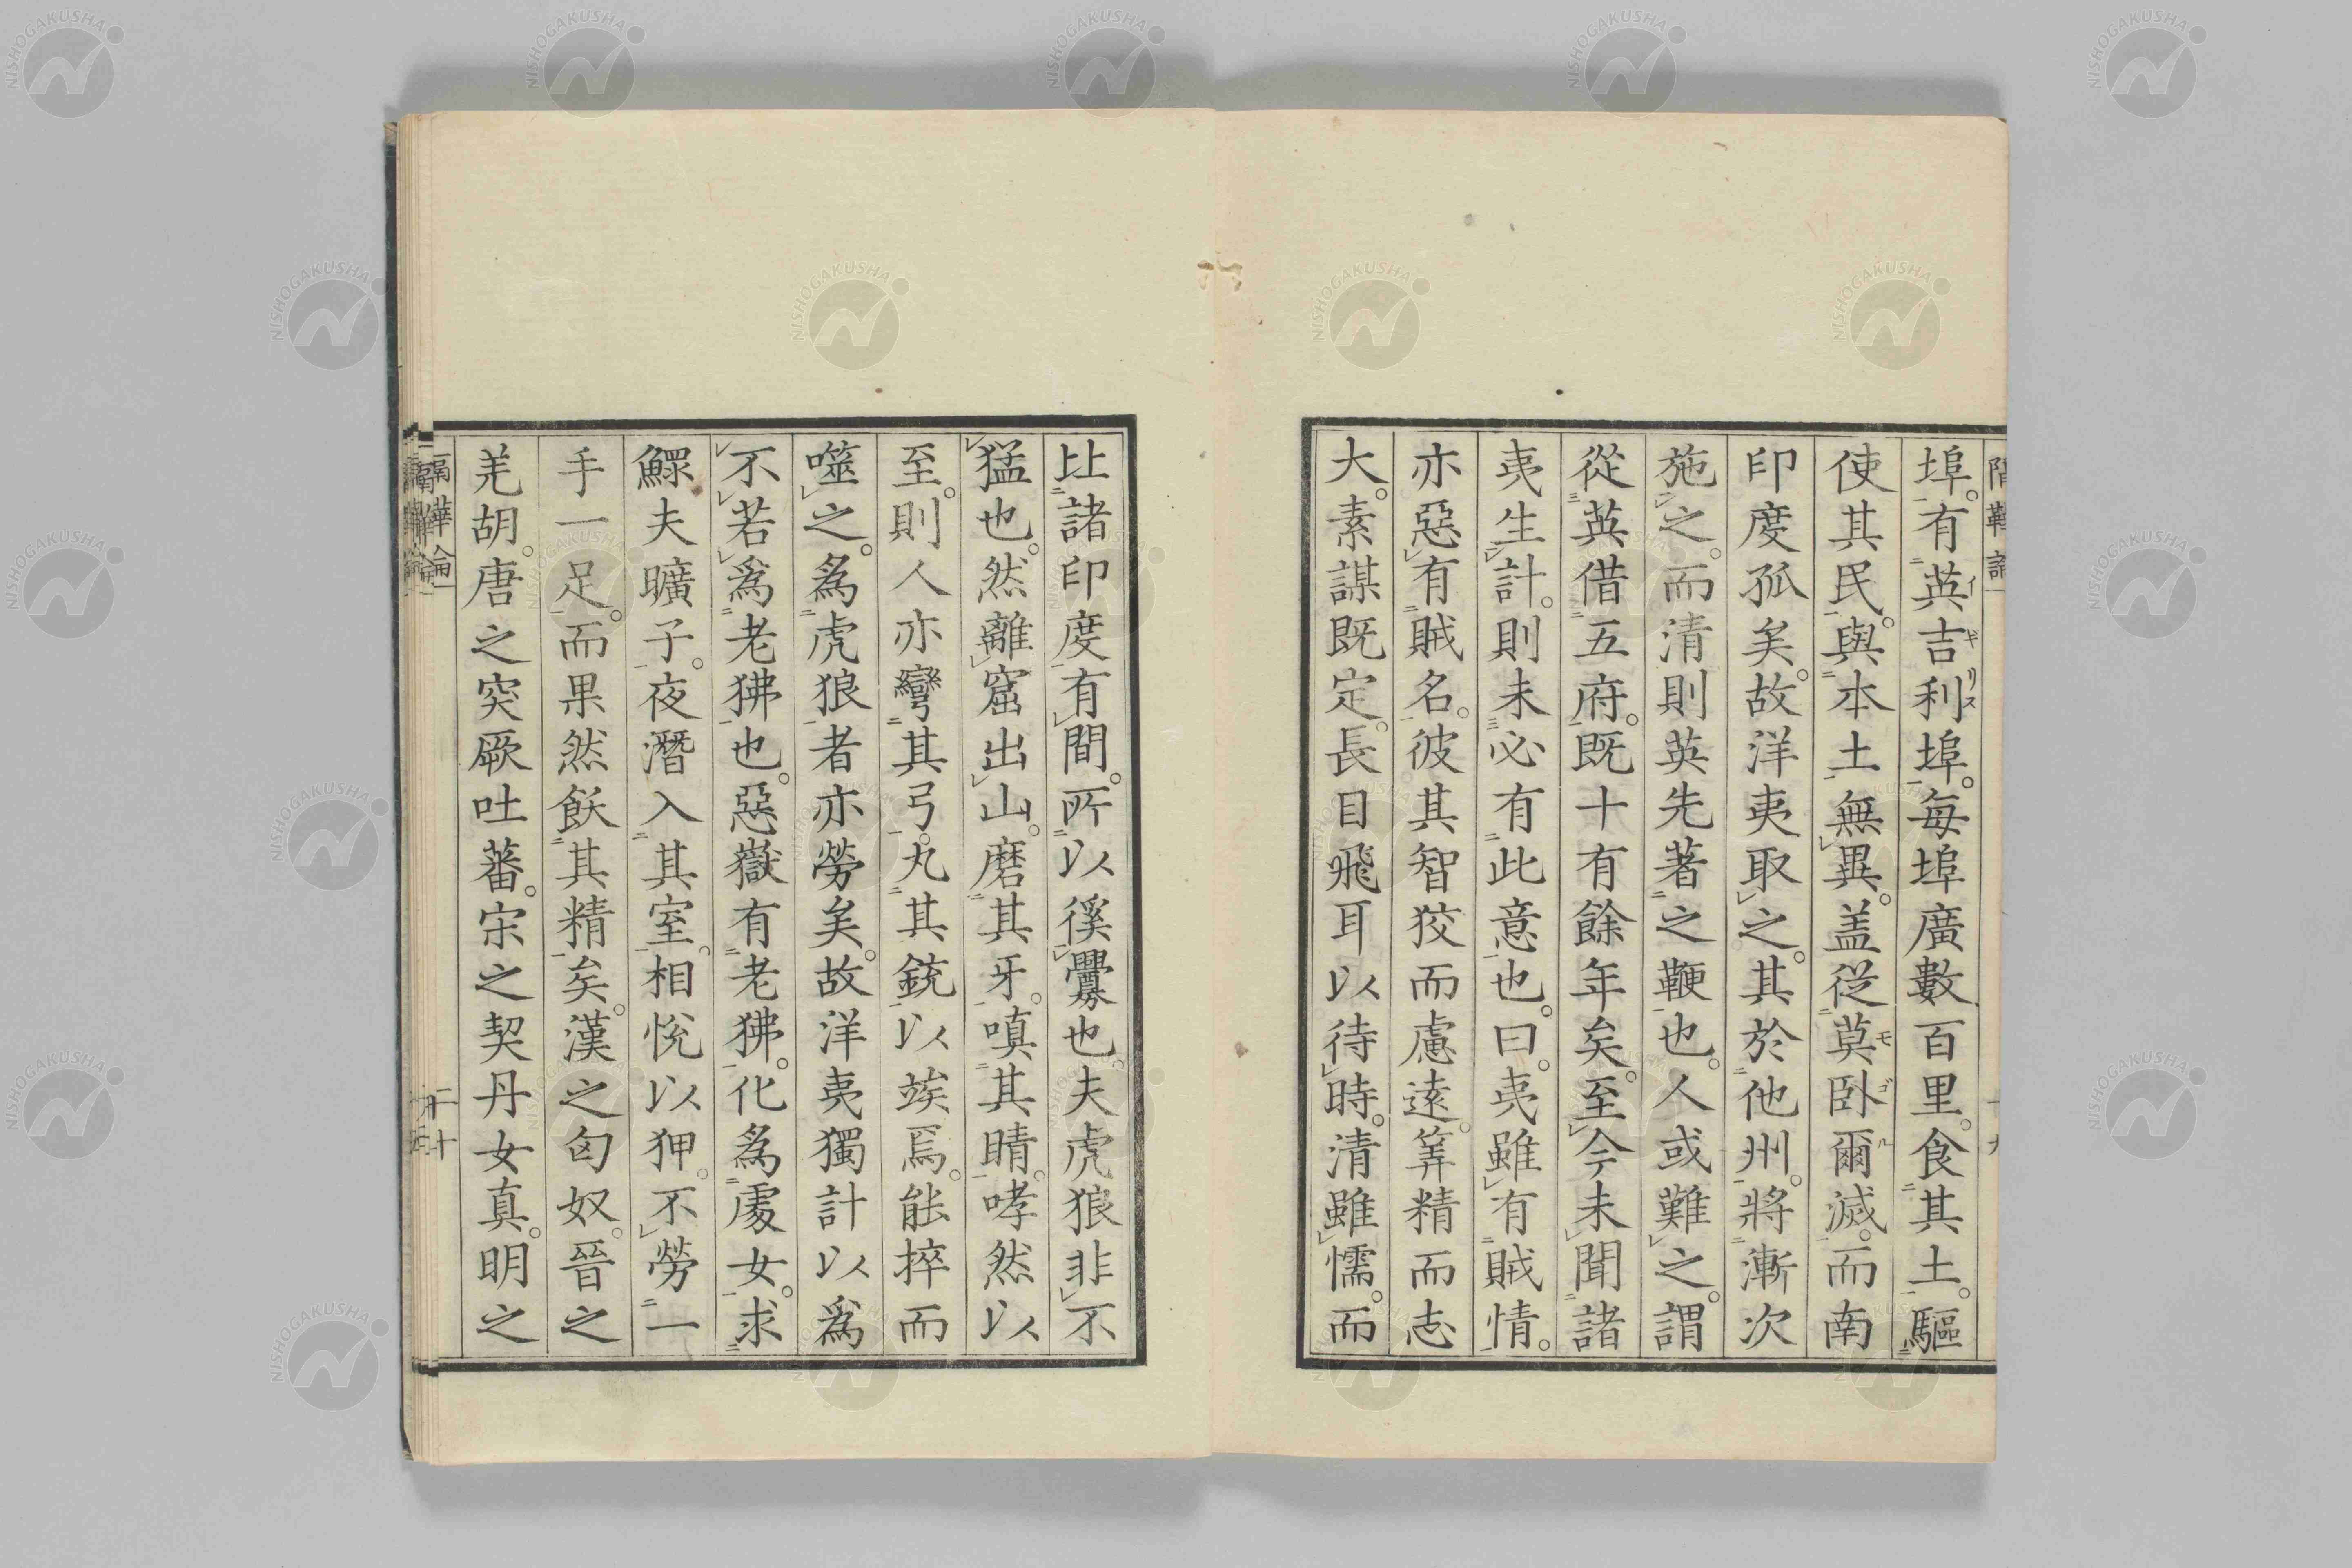 埠。有英吉利埠。每埠廣數百里。食其土。驅
使其民。與本土無異。盖從莫卧爾滅。而南
印度孤矣。故洋夷取之。其於他州。將漸次
施之。而清則英先著之鞭也。人或難之。謂
從英借五府。既十有餘年矣。至今未聞諸
夷生計。則未必有此意也。曰。夷雖有賊情。
亦惡有賊名。彼其智狡而慮遠。筭精而志
大。素謀既定。長目飛耳以待時。清雖懦。而
比諸印度有間。所以徯釁也。夫虎狼非不
猛也。然離窟出山。磨其牙。嗔其睛。哮然以
至。則人亦彎其弓。丸其銃以竢焉。能捽而
噬之。為虎狼者亦勞矣。故洋夷獨計以爲
不若爲老狒也。惡嶽有老狒。化為處女。求
鰥夫曠子。夜潛入其室。相悅以狎。不勞一
手一足。而果然飫其精矣。漢之匈奴。晉之
羌胡。唐之突厥吐蕃。宋之契丹女真。明之
隔鞾論
二十